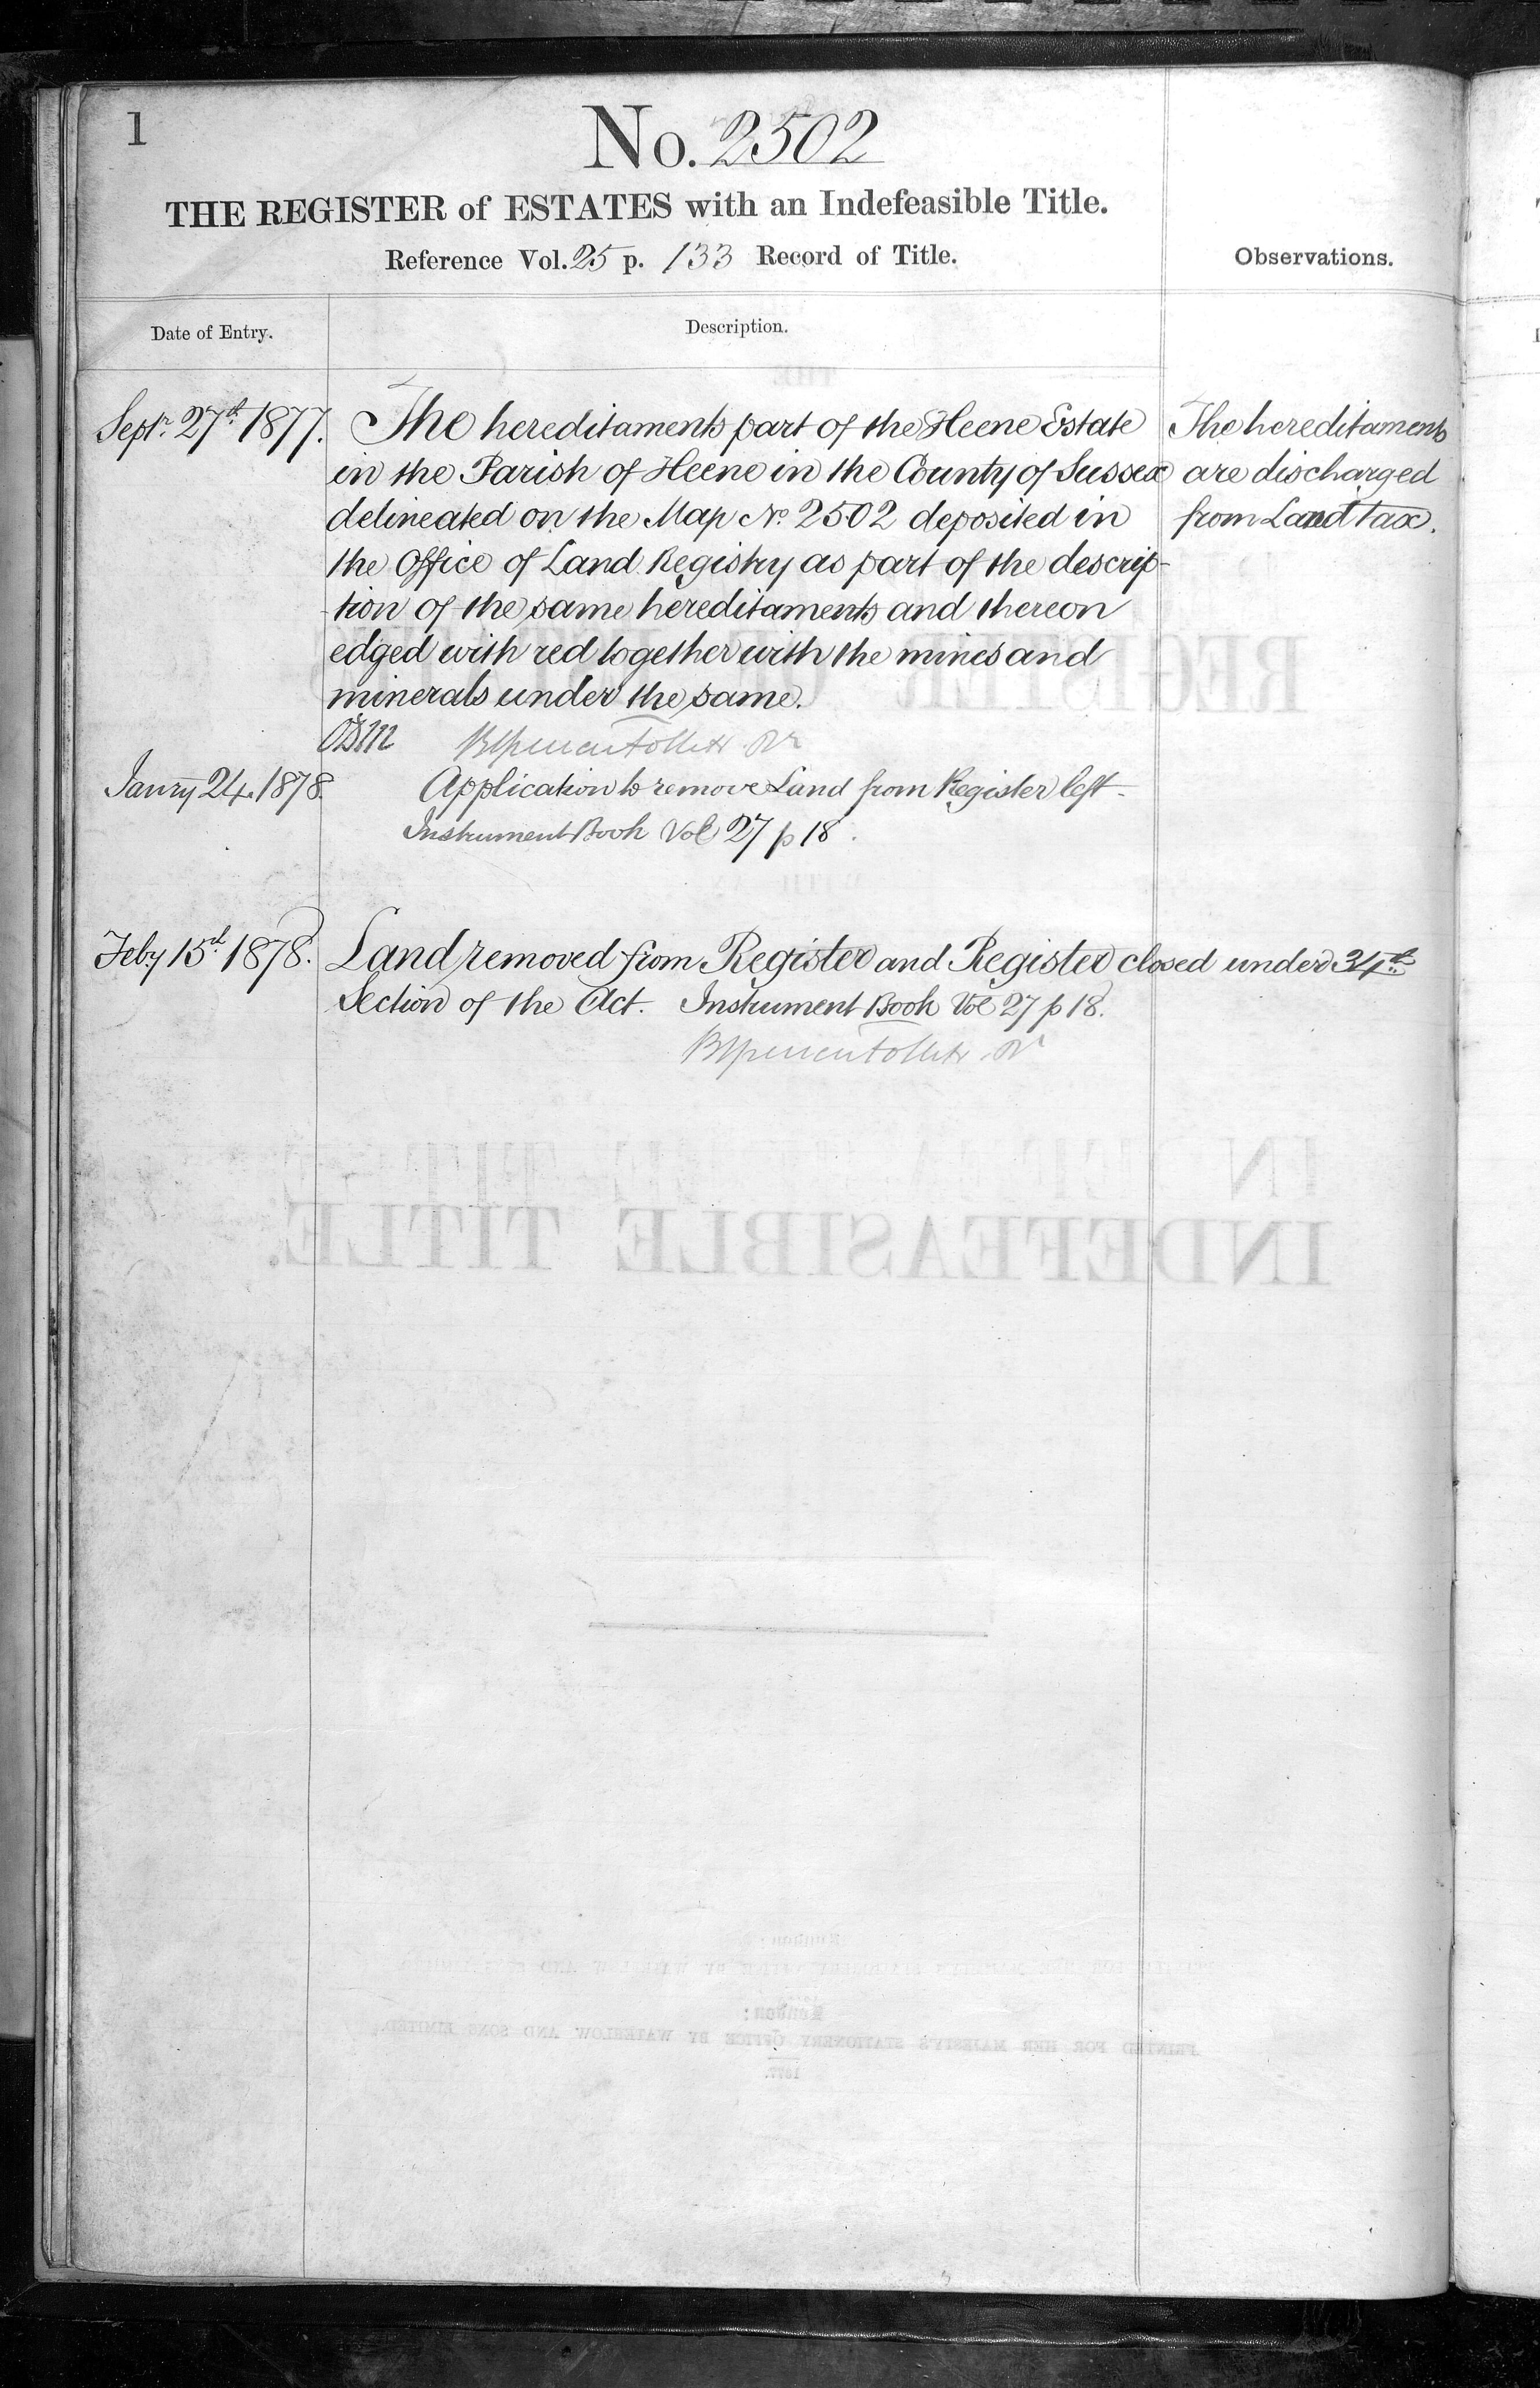 1
No. 2502
THE REGISTER of ESTATES with an Indefeasible Title.
Reference Vol. 25 p. 133 Record of Title.
Observations.
Date of Entry.
Description.
Septr. 27th 1877. The hereditaments part of the Heene Estate
in the Parish of Heene in the County of Sussex
delineated on the Map No. 2502 deposited in
the Office of Land Registry as part of the descrip-
-tion of the same hereditaments and thereon
edged with red together with the mines and
minerals under the same.
The hereditaments
are discharged
from Land tax.
Janry 24. 1878. Application to remove Land from Register left -
Instrument Book Vol 27 p 18.
Feby 15th 1878. Land removed from Register and Register closed under 34th
Section of the Act. Instrument Book Vol 27 p 18.
REGISTER
INDEFEASIBLE TITLE.
London:
PRINTED FOR HER MAJESTY'S STATIONERY OFFICE BY WATERLOW AND SONS LIMITED.
1877.